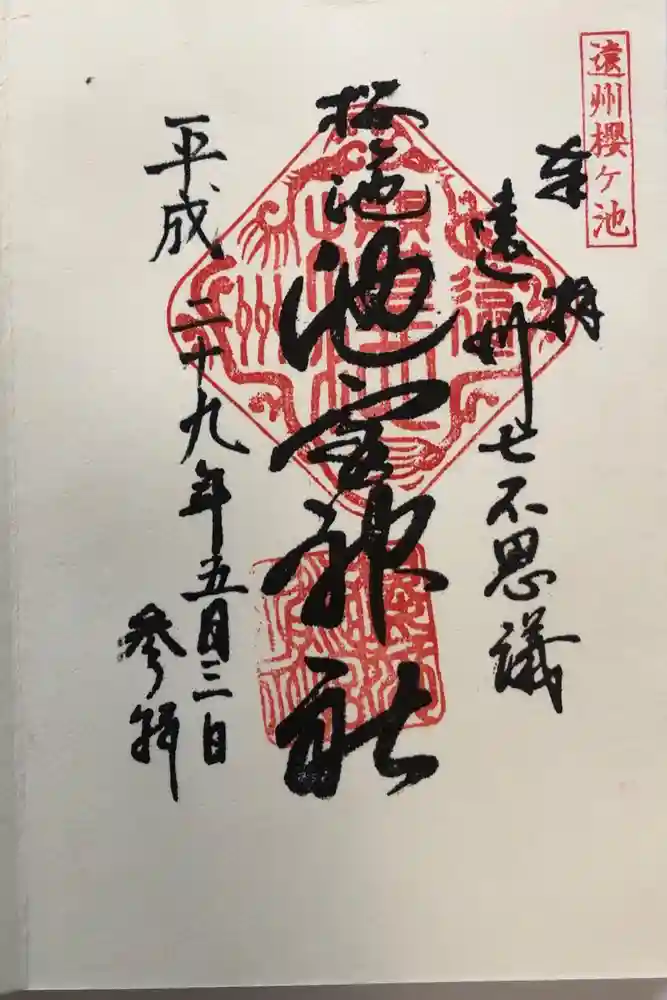 遠州櫻ヶ池
奉拝
遠州七不思議
桜ヶ池
池宮神社
平成二十九年五月三日
参拝